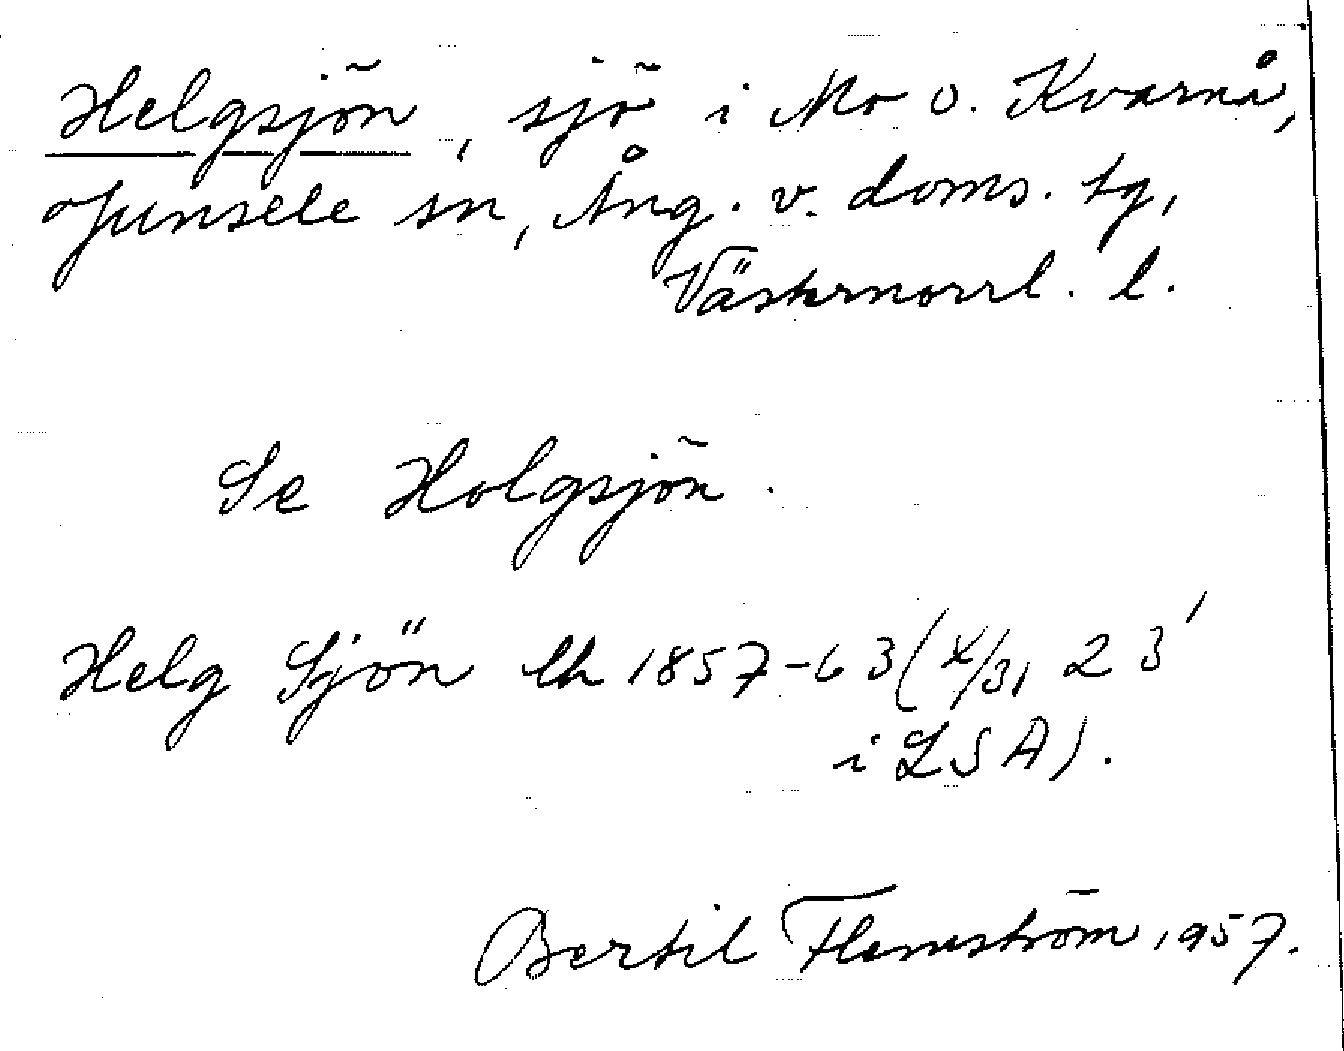 Helgsjön, sjö i Mo o. Kvarnå,
Junsele sn, Ång. v. doms. tg,
Västernorrl. l.
Se Holgsjön.
Helg Sjön lh 1857-63 (X/31 23'
i LSA).
Bertil Flemström 1957.